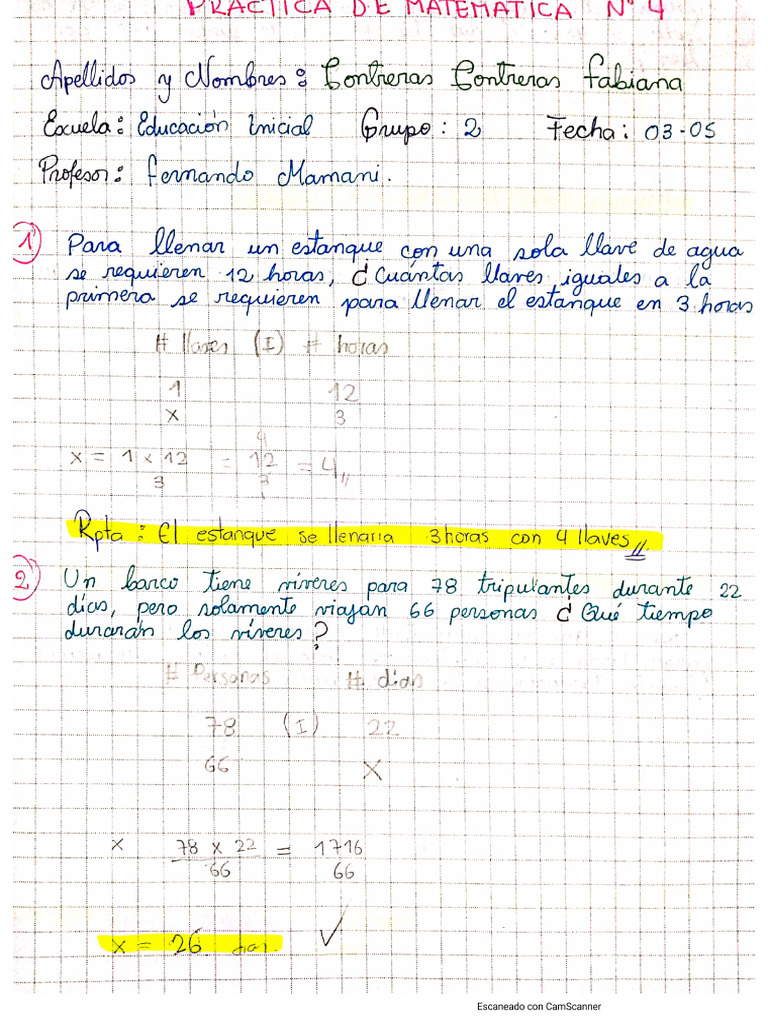 PRÁCTICA DE MATEMATICA Nº 4
Apellidos y Nombres: Contreras Contreras Fabiana
Escuela: Educación Inicial Grupo: 2 Fecha: 03-05
Profesor: Fernando Mamani.
1) Para llenar un estanque con una sola llave de agua
se requieren 12 horas, ¿Cuántas llaves iguales a la
primera se requieren para llenar el estanque en 3 horas
# llaves (I) # horas
1 12
x 3
x = 1 x 12 / 3 = 12 / 3 = 4
Rpta: El estanque se llenaria 3 horas con 4 llaves
2) Un barco tiene víveres para 78 tripulantes durante 22
días, pero solamente viajan 66 personas ¿Qué tiempo
durarán los víveres?
# Personas # días
78 (I) 22
66 X
x 78 x 22 / 66 = 1716 / 66
x = 26 √
Escaneado con CamScanner